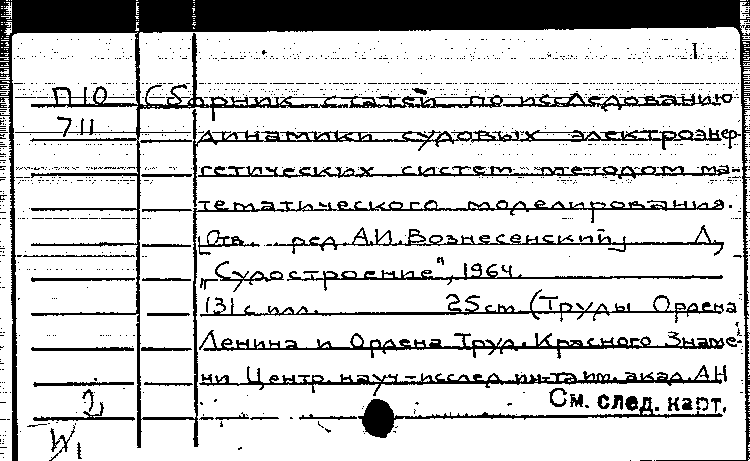 1
П10 Сборник статей по исследованию
711 динамики судовых электроэнер-
гетических систем методом ма-
тематического моделирования.
[Отв. ред. А.И. Вознесенский] Л.,
„Судостроение", 1964.
131 с. илл. 25 см (Труды Ордена
Ленина и Ордена Труд. Красного Знаме-
ни Центр. науч-исслед. ин-та им. акад. АН
2
См. след. карт.